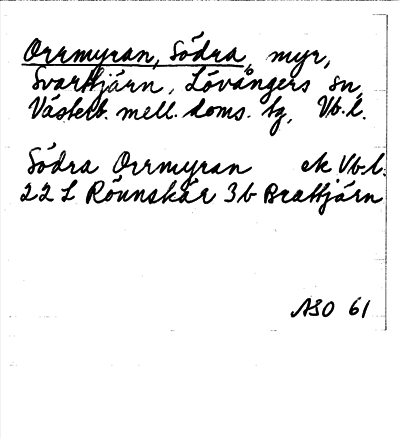 Orrmyran, Södra, myr,
Svarttjärn, Lövångers sn,
Västerb. mell. doms. tg, Vb. l.
Södra Orrmyran ek Vb. l.
22 L Rönnskär 3b Brattjärn
ASO 61